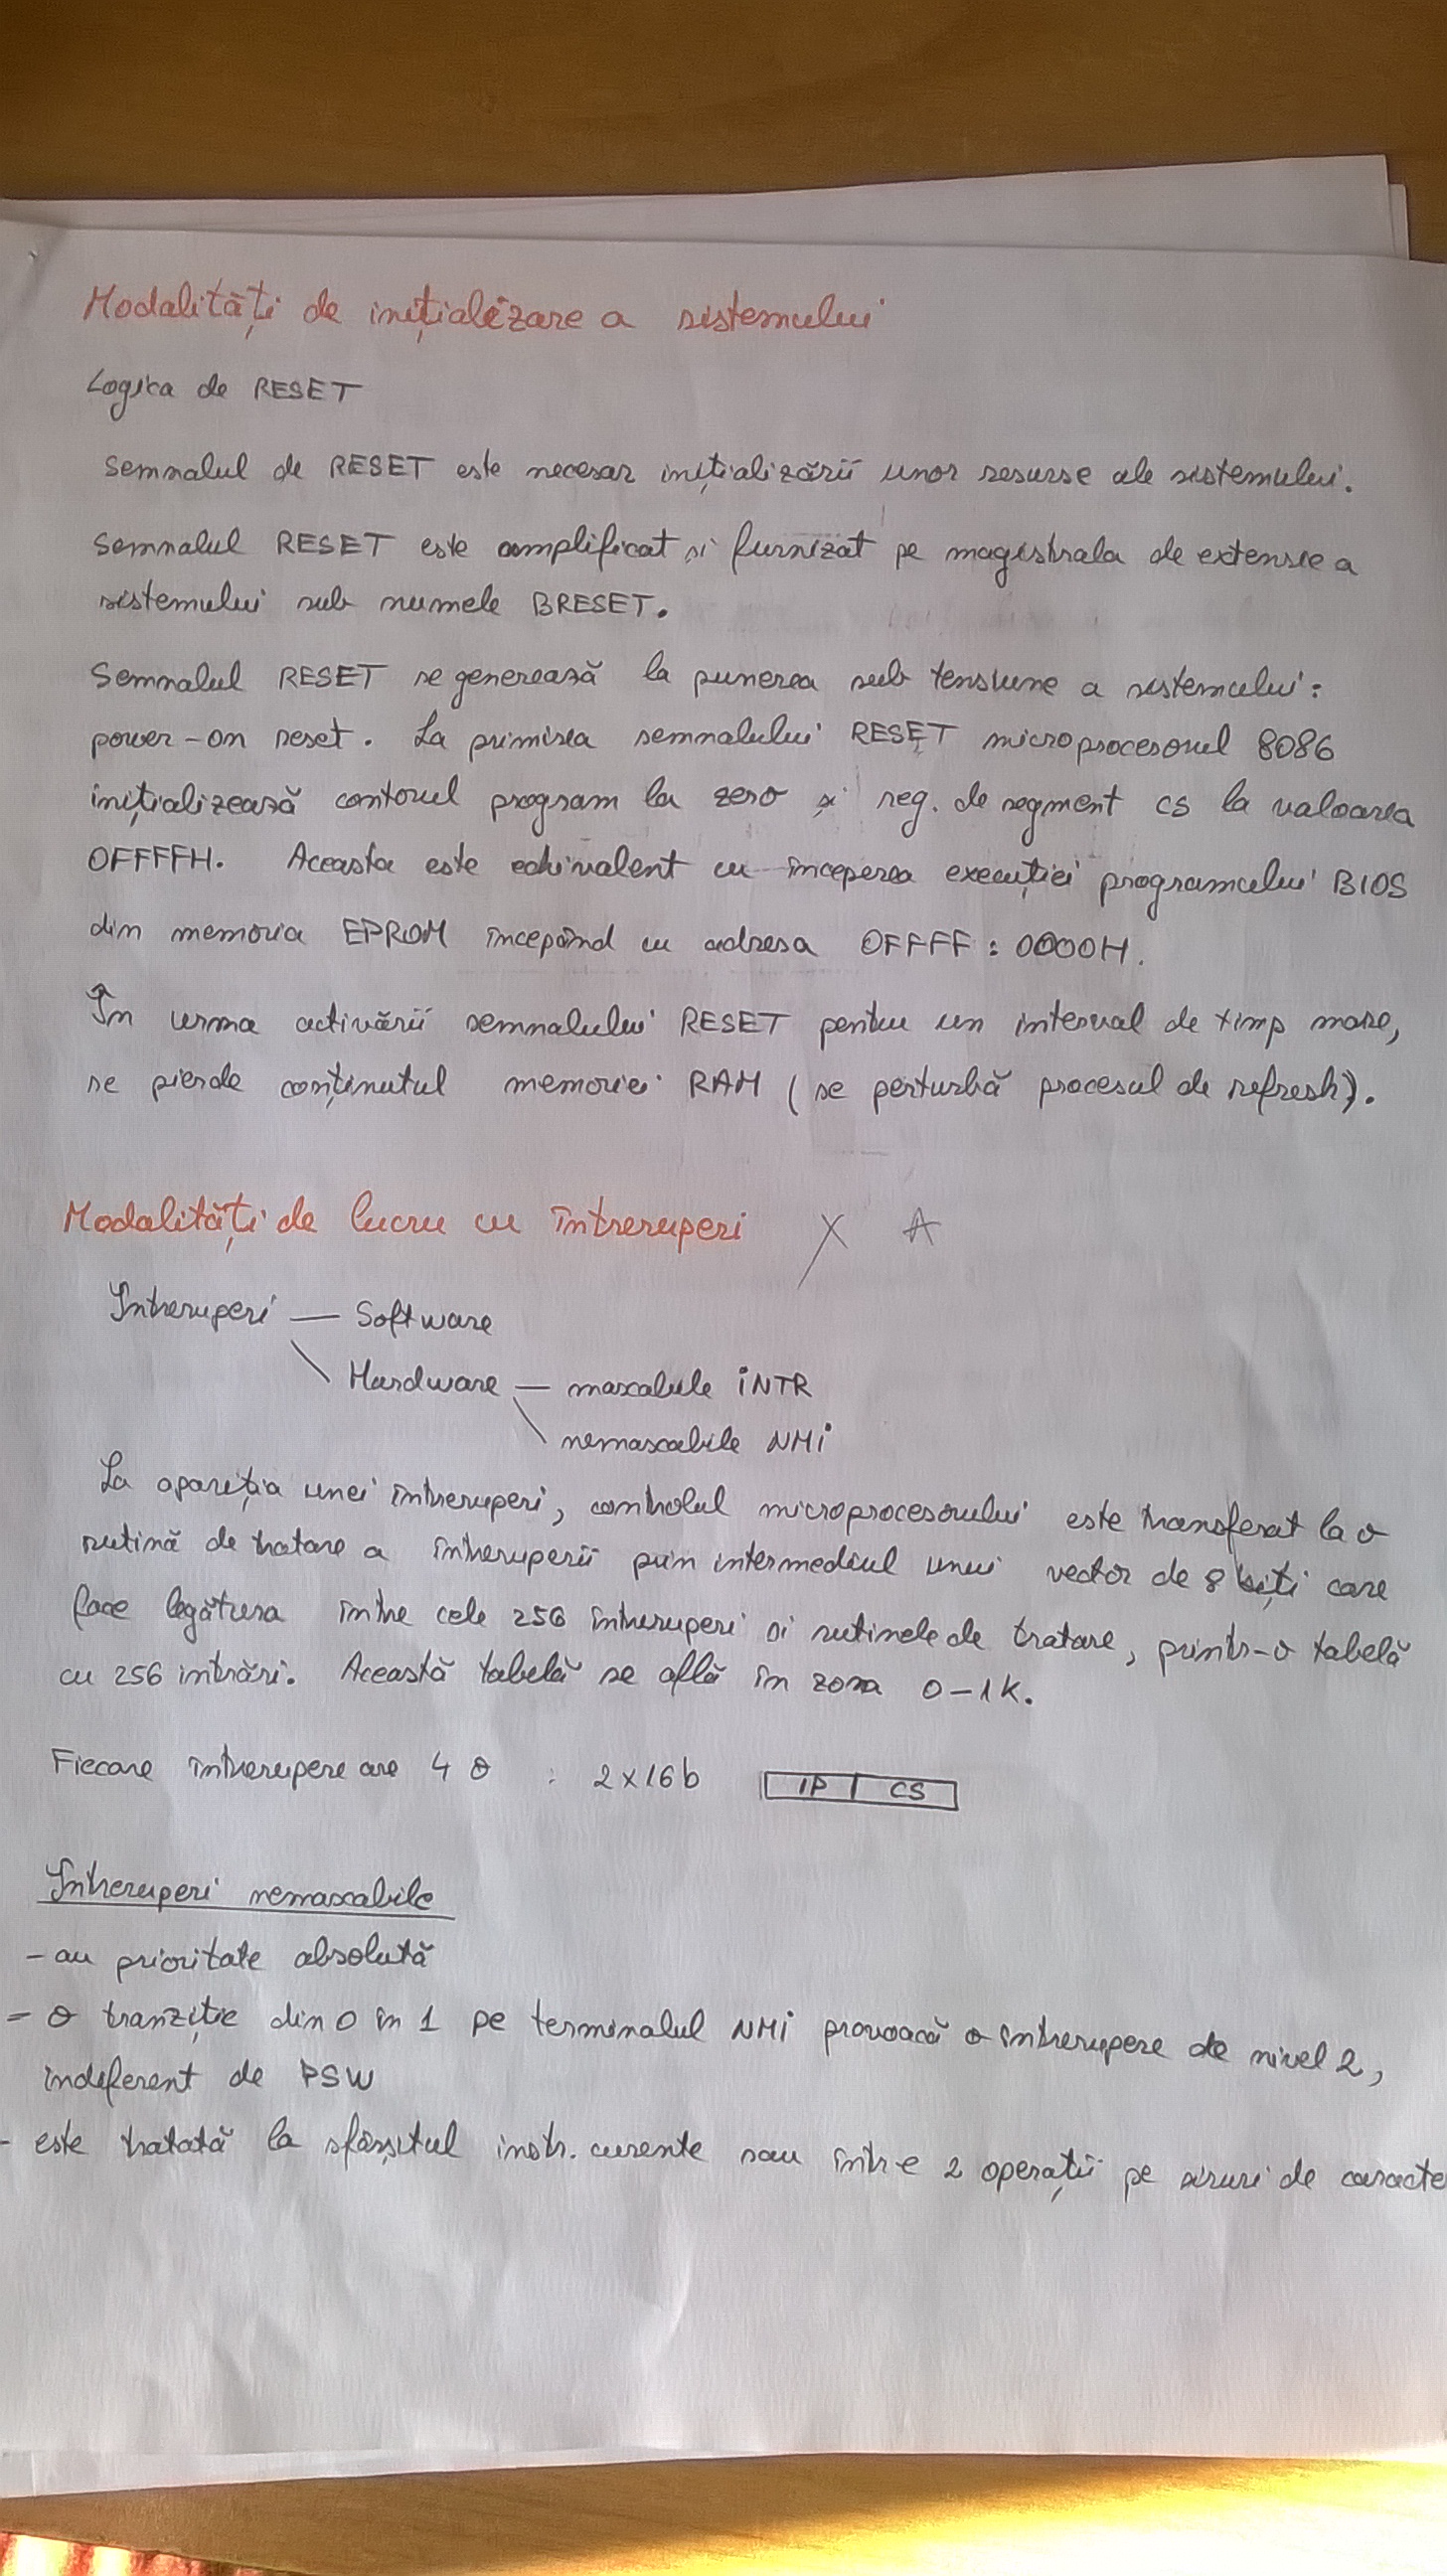 Modalități de inițializare a sistemului
Logica de RESET
Semnalul de RESET este necesar inițializării unor resurse ale sistemului.
Semnalul RESET este amplificat și furnizat pe magistrala de extensie a
sistemului sub numele BRESET.
Semnalul RESET se generează la punerea sub tensiune a sistemului:
power-on reset. La primirea semnalului RESET microprocesorul 8086
inițializează contorul program la zero și reg. de segment CS la valoarea
0FFFFH. Aceasta este echivalent cu începerea execuției programului BIOS
din memoria EPROM începând cu adresa 0FFFF:0000H.
În urma activării semnalului RESET pentru un interval de timp mare,
se pierde conținutul memoriei RAM (se perturbă procesul de refresh).
Modalități de lucru cu întreruperi X A
Întreruperi — Software
\ Hardware — mascabile INTR
\ nemascabile NMI
La apariția unei întreruperi, controlul microprocesorului este transferat la o
rutină de tratare a întreruperii prin intermediul unui vector de 8 biți care
face legătura între cele 256 întreruperi și rutinele de tratare, printr-o tabelă
cu 256 intrări. Această tabelă se află în zona 0-1K.
Fiecare întrerupere are 4 : 2x16b IP CS
Întreruperi nemascabile
- au prioritate absolută
- o tranziție din 0 în 1 pe terminalul NMI provoacă o întrerupere de nivel 2,
indiferent de PSW
- este tratată la sfârșitul instr. curente sau între 2 operații pe șiruri de caracte